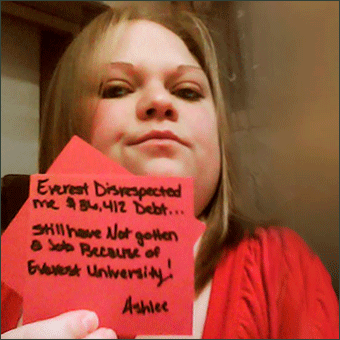 Everest Disrespected
me $86,412 Debt...
Still have Not gotten
a Job Because of
Everest University!
Ashlee